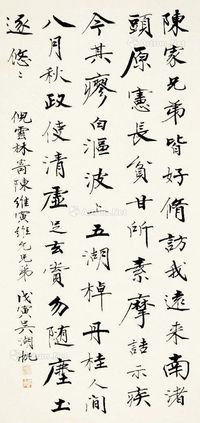 陳家兄弟皆好脩訪我遠来南渚
頭原憲長貧甘所素摩詰示疾
今其瘳白漚波上五湖棹丹桂人間
八月秋政使清虛足玄賞勿随塵土
逐悠〻
倪雲林寄陳維寅維允兄弟 戊寅吴湖帆